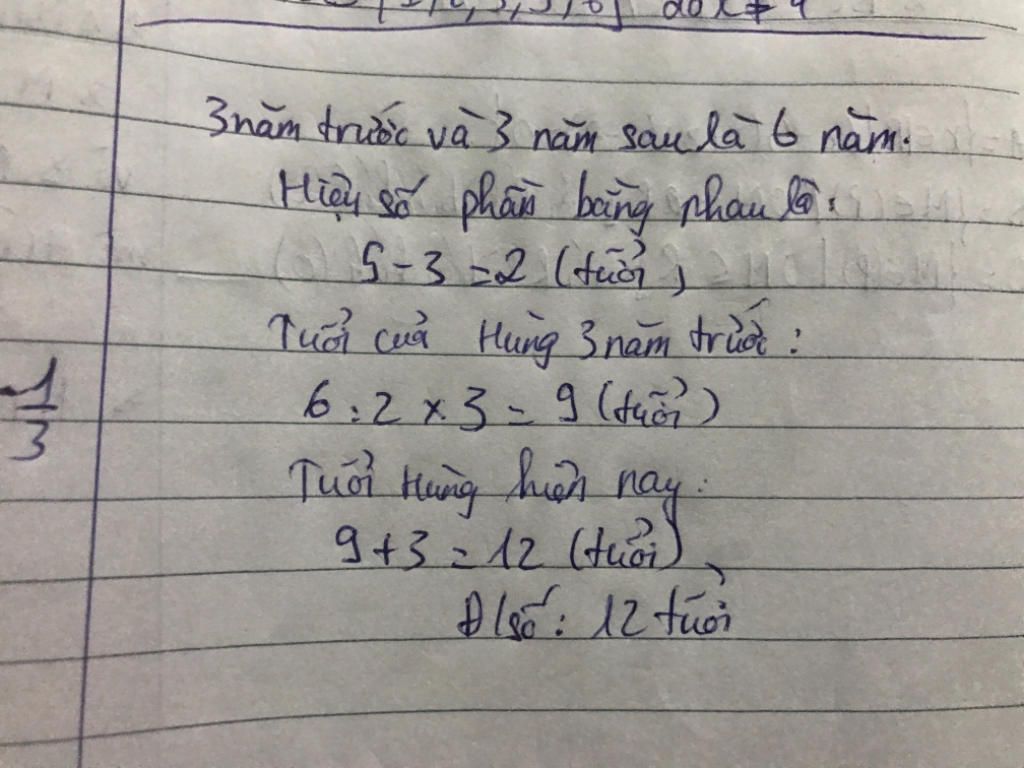 3 năm trước và 3 năm sau là 6 năm.
Hiệu số phần bằng nhau là:
5 - 3 = 2 (tuổi)
Tuổi của Hùng 3 năm trước:
6 : 2 x 3 = 9 (tuổi)
1
3
Tuổi Hùng hiện nay:
9 + 3 = 12 (tuổi)
Đ/số: 12 tuổi